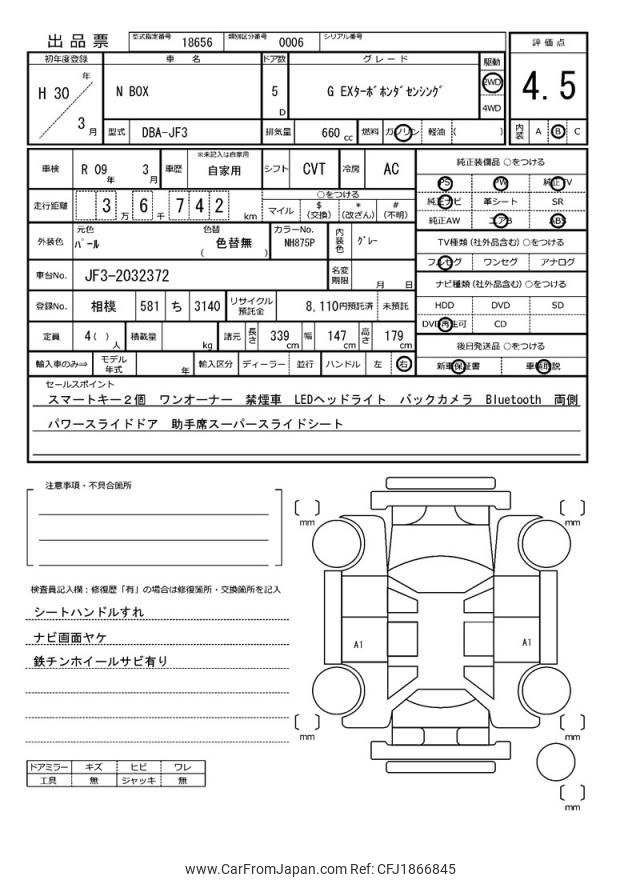 出品票 型式指定番号 18656 類別区分番号 0006 シリアル番号
評価点
4.5
内装 A B C
初年度登録 車名 ドア数 グレード 駆動
H 30 年 3 月
N BOX 5 D G EXターボホンダセンシング 2WD 4WD
型式 DBA-JF3 排気量 660 cc 燃料 ガソリン 軽油 ( )
車検 R 09 年 3 月 車歴 ※未記入は自家用 自家用 シフト CVT 冷房 AC
走行距離 3 万 6 千 7 4 2 km
○をつける
マイル $ (交換) * (改ざん) # (不明)
外装色 元色 パール 色替 ( 色替無 ) カラーNo. NH875P 内装色 グレー
車台No. JF3-2032372 名変期限 月 日
登録No. 相模 581 ち 3140 リサイクル預託金 8,110円預託済 未預託
定員 4( ) 人 積載量 kg 諸元 長さ 339 cm 幅 147 cm 高さ 179 cm
輸入車のみ⇒ モデル年式 年 輸入区分 ディーラー 並行 ハンドル 左 右
純正装備品 ○をつける
PS PW 純正TV
純正ナビ 革シート SR
純正AW エアB ABS
TV種類(社外品含む) ○をつける
フルセグ ワンセグ アナログ
ナビ種類(社外品含む) ○をつける
HDD DVD SD
DVD再生可 CD
後日発送品 ○をつける
新車保証書 車輌取説
セールスポイント
スマートキー2個 ワンオーナー 禁煙車 LEDヘッドライト バックカメラ Bluetooth 両側
パワースライドドア 助手席スーパースライドシート
注意事項・不具合箇所
検査員記入欄:修復歴「有」の場合は修復箇所・交換箇所を記入
シートハンドルすれ
ナビ画面ヤケ
鉄チンホイールサビ有り
ドアミラー キズ ヒビ ワレ
工具 無 ジャッキ 無
[ ] mm
[ ] mm
A1
A1
[ ] mm
[ ] mm
[ ] mm
www.CarFromJapan.com Ref: CFJ1866845